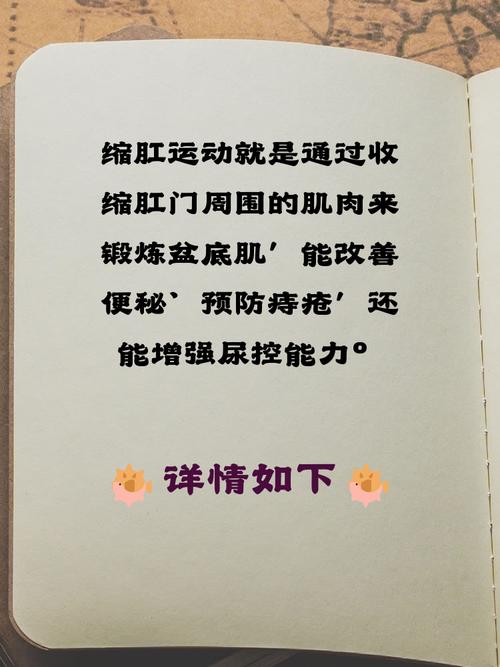 缩肛运动就是通过收
缩肛门周围的肌肉来
锻炼盆底肌，能改善
便秘、预防痔疮，还
能增强尿控能力。
详情如下